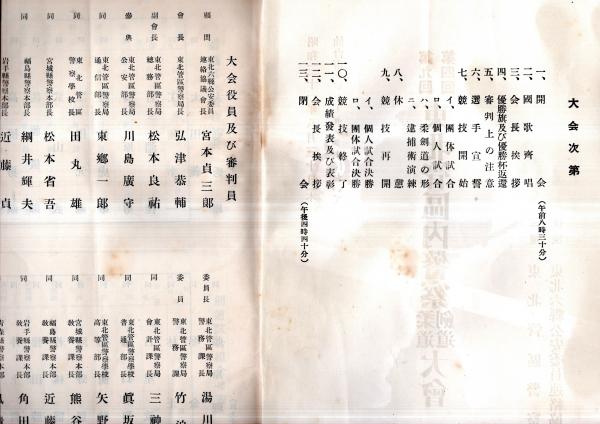 大会次第
一、開会（午前八時三十分）
二、國歌齊唱
三、会長挨拶
四、優勝旗及び優勝杯返還
五、審判上の注意
六、選手宣誓
七、競技開始
イ、團体試合
ロ、個人試合
ハ、柔劍道の形
ニ、逮捕術演練
八、休憩
九、競技再開
イ、個人試合決勝
ロ、團体試合決勝
一〇、競技終了
一一、成績発表及び表彰
一二、会長挨拶
一三、閉会（午後四時四十分）
大会役員及び審判員
顧問 東北六縣公安委員連絡協議会長 宮本貞三郎
会長 東北管區警察局長 弘津恭輔
副会長 東北管區警察局総務部長 松本良祐
參與 東北管區警察局公安部長 川島廣守
同 東北管區警察局通信部長 東郷一郎
同 東北管區警察学校長 田丸雄
同 宮城縣警察本部長 松本省吾
同 福島縣警察本部長 綱井輝夫
同 岩手縣警察本部長 近藤貞
委員長 東北管區警察局警務課長 湯川
委員 東北管區警察局警務課 竹
同 東北管區警察局会計課長 三神
同 東北管區警察学校普通部長 眞坂
同 東北管區警察学校高等部長 矢野
同 宮城縣警察本部教養課長 熊谷
同 福島縣警察本部教養課長 近藤
同 岩手縣警察本部教養課長 角田